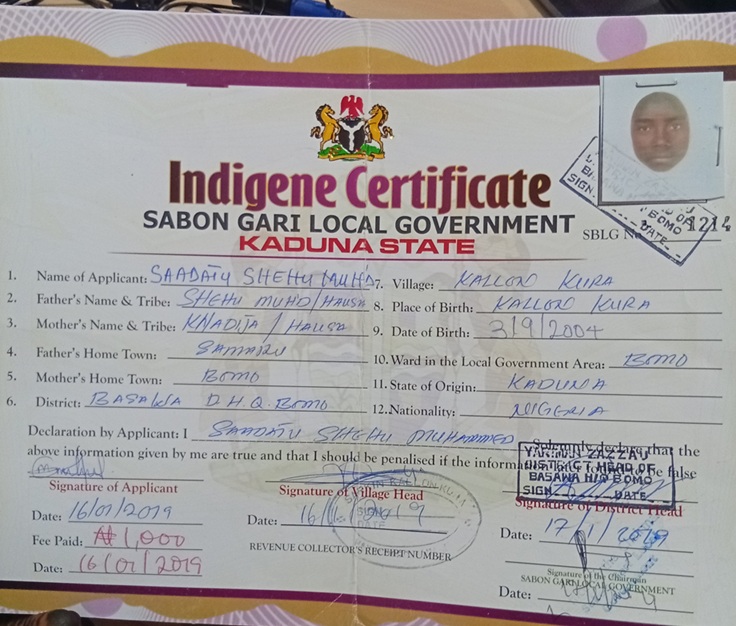 Indigene Certificate
SABON GARI LOCAL GOVERNMENT
KADUNA STATE
SBLG No 1214
SIGN.
BOMO
DATE
1. Name of Applicant: SAADATU SHEHU MUH'D
2. Father's Name & Tribe: SHEHU MUHD/HAUSA
3. Mother's Name & Tribe: KHADIJA / HAUSA
4. Father's Home Town: SAMARU
5. Mother's Home Town: BOMO
6. District: BASAWA D.H.Q. BOMO
7. Village: KALLON KURA
8. Place of Birth: KALLON KURA
9. Date of Birth: 3/9/2004
10. Ward in the Local Government Area: BOMO
11. State of Origin: KADUNA
12. Nationality: NIGERIA
Declaration by Applicant: I SAADATU SHEHU MUHAMMED Solemnly declare that the
above information given by me are true and that I should be penalised if the information to be false
YARIMAN ZAZZAU
DISTRICT HEAD OF
BASAWA H/Q BOMO
SIGN DATE
Signature of Applicant
Date: 16/01/2019
Fee Paid: ₦1,000
Date: 16/01/2019
Signature of Village Head
Date: 16
SIGN
DATE
REVENUE COLLECTOR'S RECEIPT NUMBER
Signature of District Head
Date: 17/1/2019
Signature of the Chairman
SABON GARI LOCAL GOVERNMENT
Date: